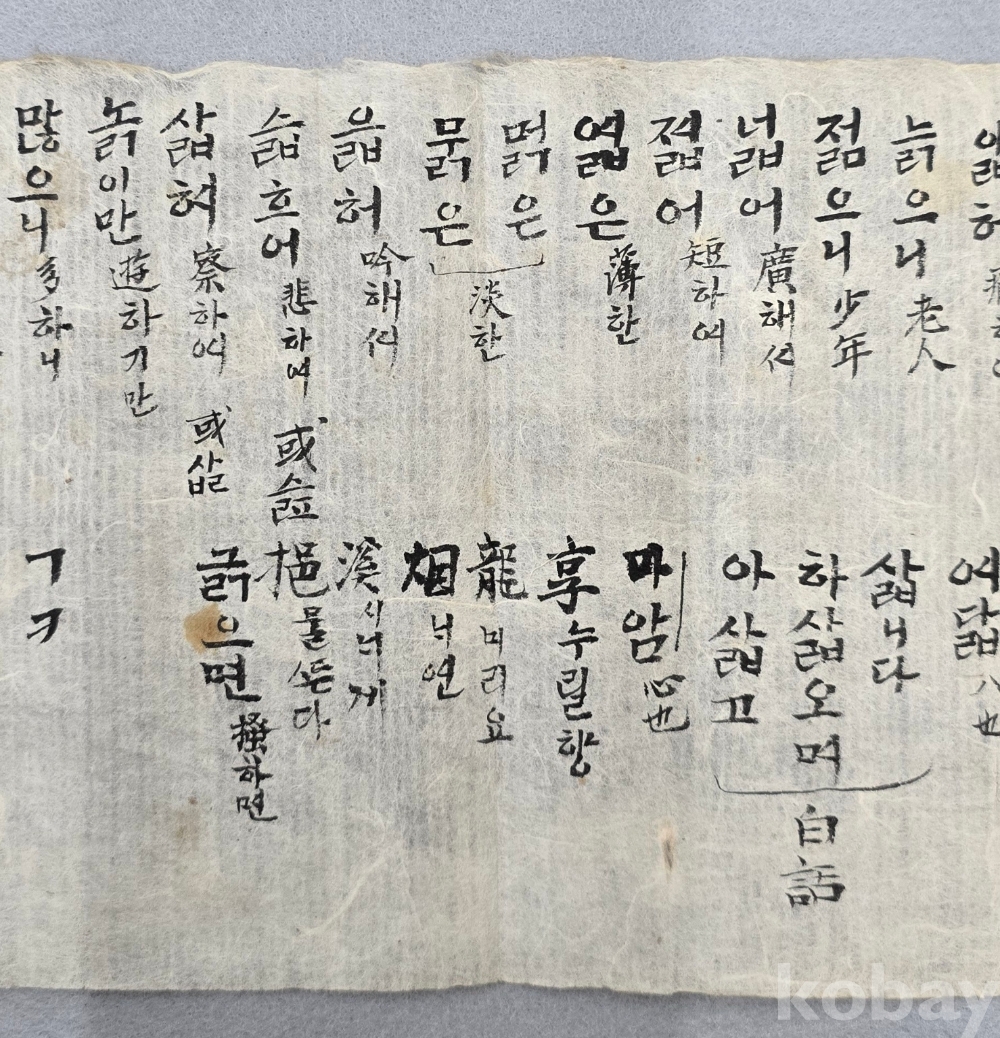 늙으니 老人
젊으니 少年
넓어 廣해서
젋어 短하여
엷은 薄한
떩은
묽은 淡한
읇허 吟해서
슯흐어 悲하여 或슯
삷혀 察하여 或삷
놁이만 遊하기만
많으니 多하니
여닯 八也
삷니다
하삷오며
아삷고
白話
마암 心也
享 누릴향
龍 미리요
烟 늬연
溪 시늬게
挹 물뜬다
긁으면 搔하면
ㄱㅋ
kobay